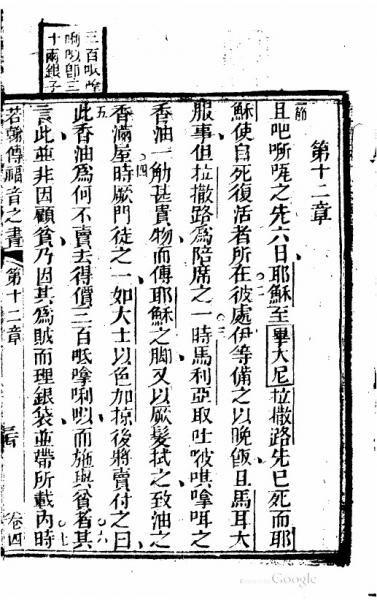 第十二章
一節
且吧之先六日耶穌至畢大尼拉撒路先已死而耶
穌使自死復活者所在彼處伊等備之以晚飯且馬耳大
服事但拉撒路爲陪席之一時馬利亞取吐唭嗱咡之
香油一觔甚貴物而傅耶穌之脚又以厥髮拭之致油之
香滿屋時厥門徒之一如大士以色加掠後將賣付之曰
此香油爲何不賣去得價三百呧嗱唎㕥而施與貧者其
言此並非因顧貧乃因其爲賊而理銀袋並帶所載內時
二
三
四
五
六
七
三百呧嗱
唎㕥即三
十兩銀子
若翰傳福音之書 第十二章 卷四
Google